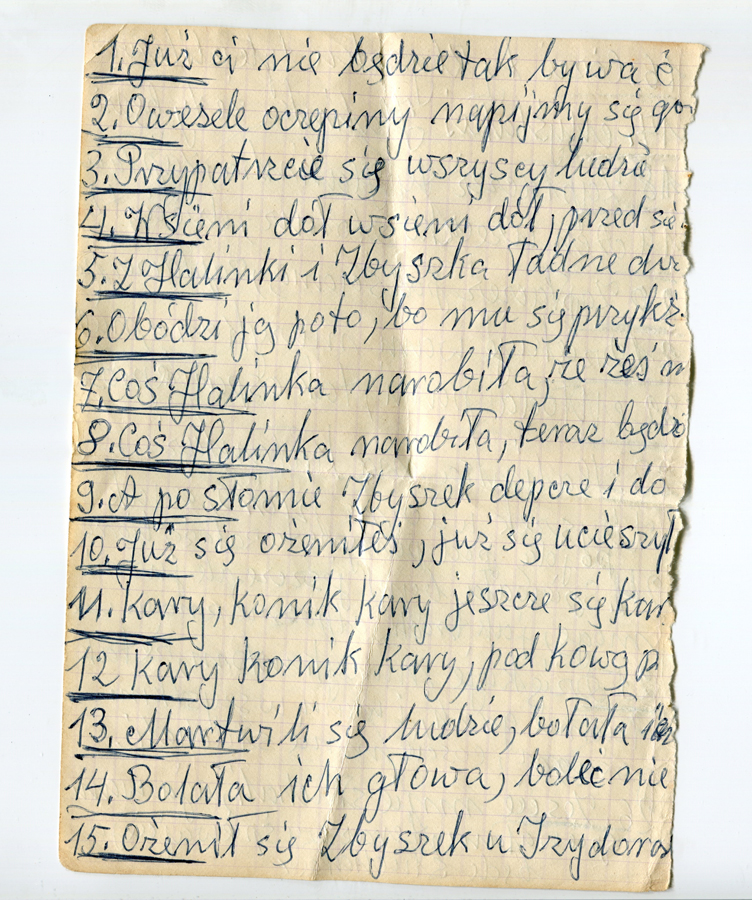 1. Już ci nie będzie tak bywać
2. Owesele oczepiny napijmy się
3. Przypatrzcie się wszyscy ludzie
4. Wsieni dół wsieni dół, przed sie
5. Z Halinki i Zbyszka ładne
6. Obódzi ją poto, bo mu się przykż
7. Coś Halinka narobiła, że żeś
8. Coś Halinka narobiła, teraz będzi
9. A po słomie Zbyszek depcze i do
10. Już się ożeniłeś, już się ucieszył
11. Kary, konik kary jeszcze się kar
12 Kary konik kary, podkową p
13. Martwili się ludzie, bolała
14. Bolała ich głowa, boleć nie
15. Ożenił się Zbyszek u Izydoros